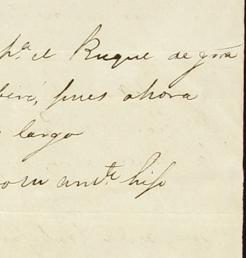 pª el Buque de gªra
beré, pues ahora
largo
om amte hijo